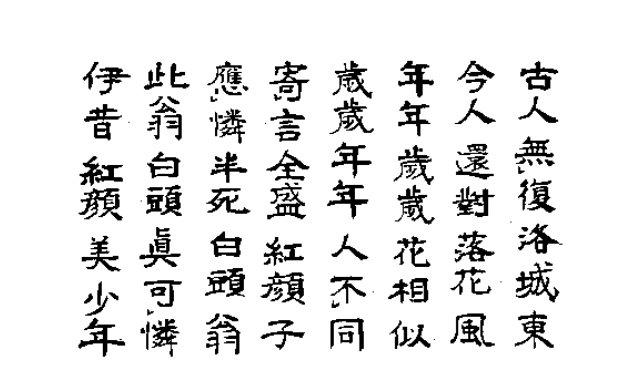 古人無復洛城東
今人還對落花風
年年歲歲花相似
歲歲年年人不同
寄言全盛紅顏子
應憐半死白頭翁
此翁白頭眞可憐
伊昔紅顏美少年